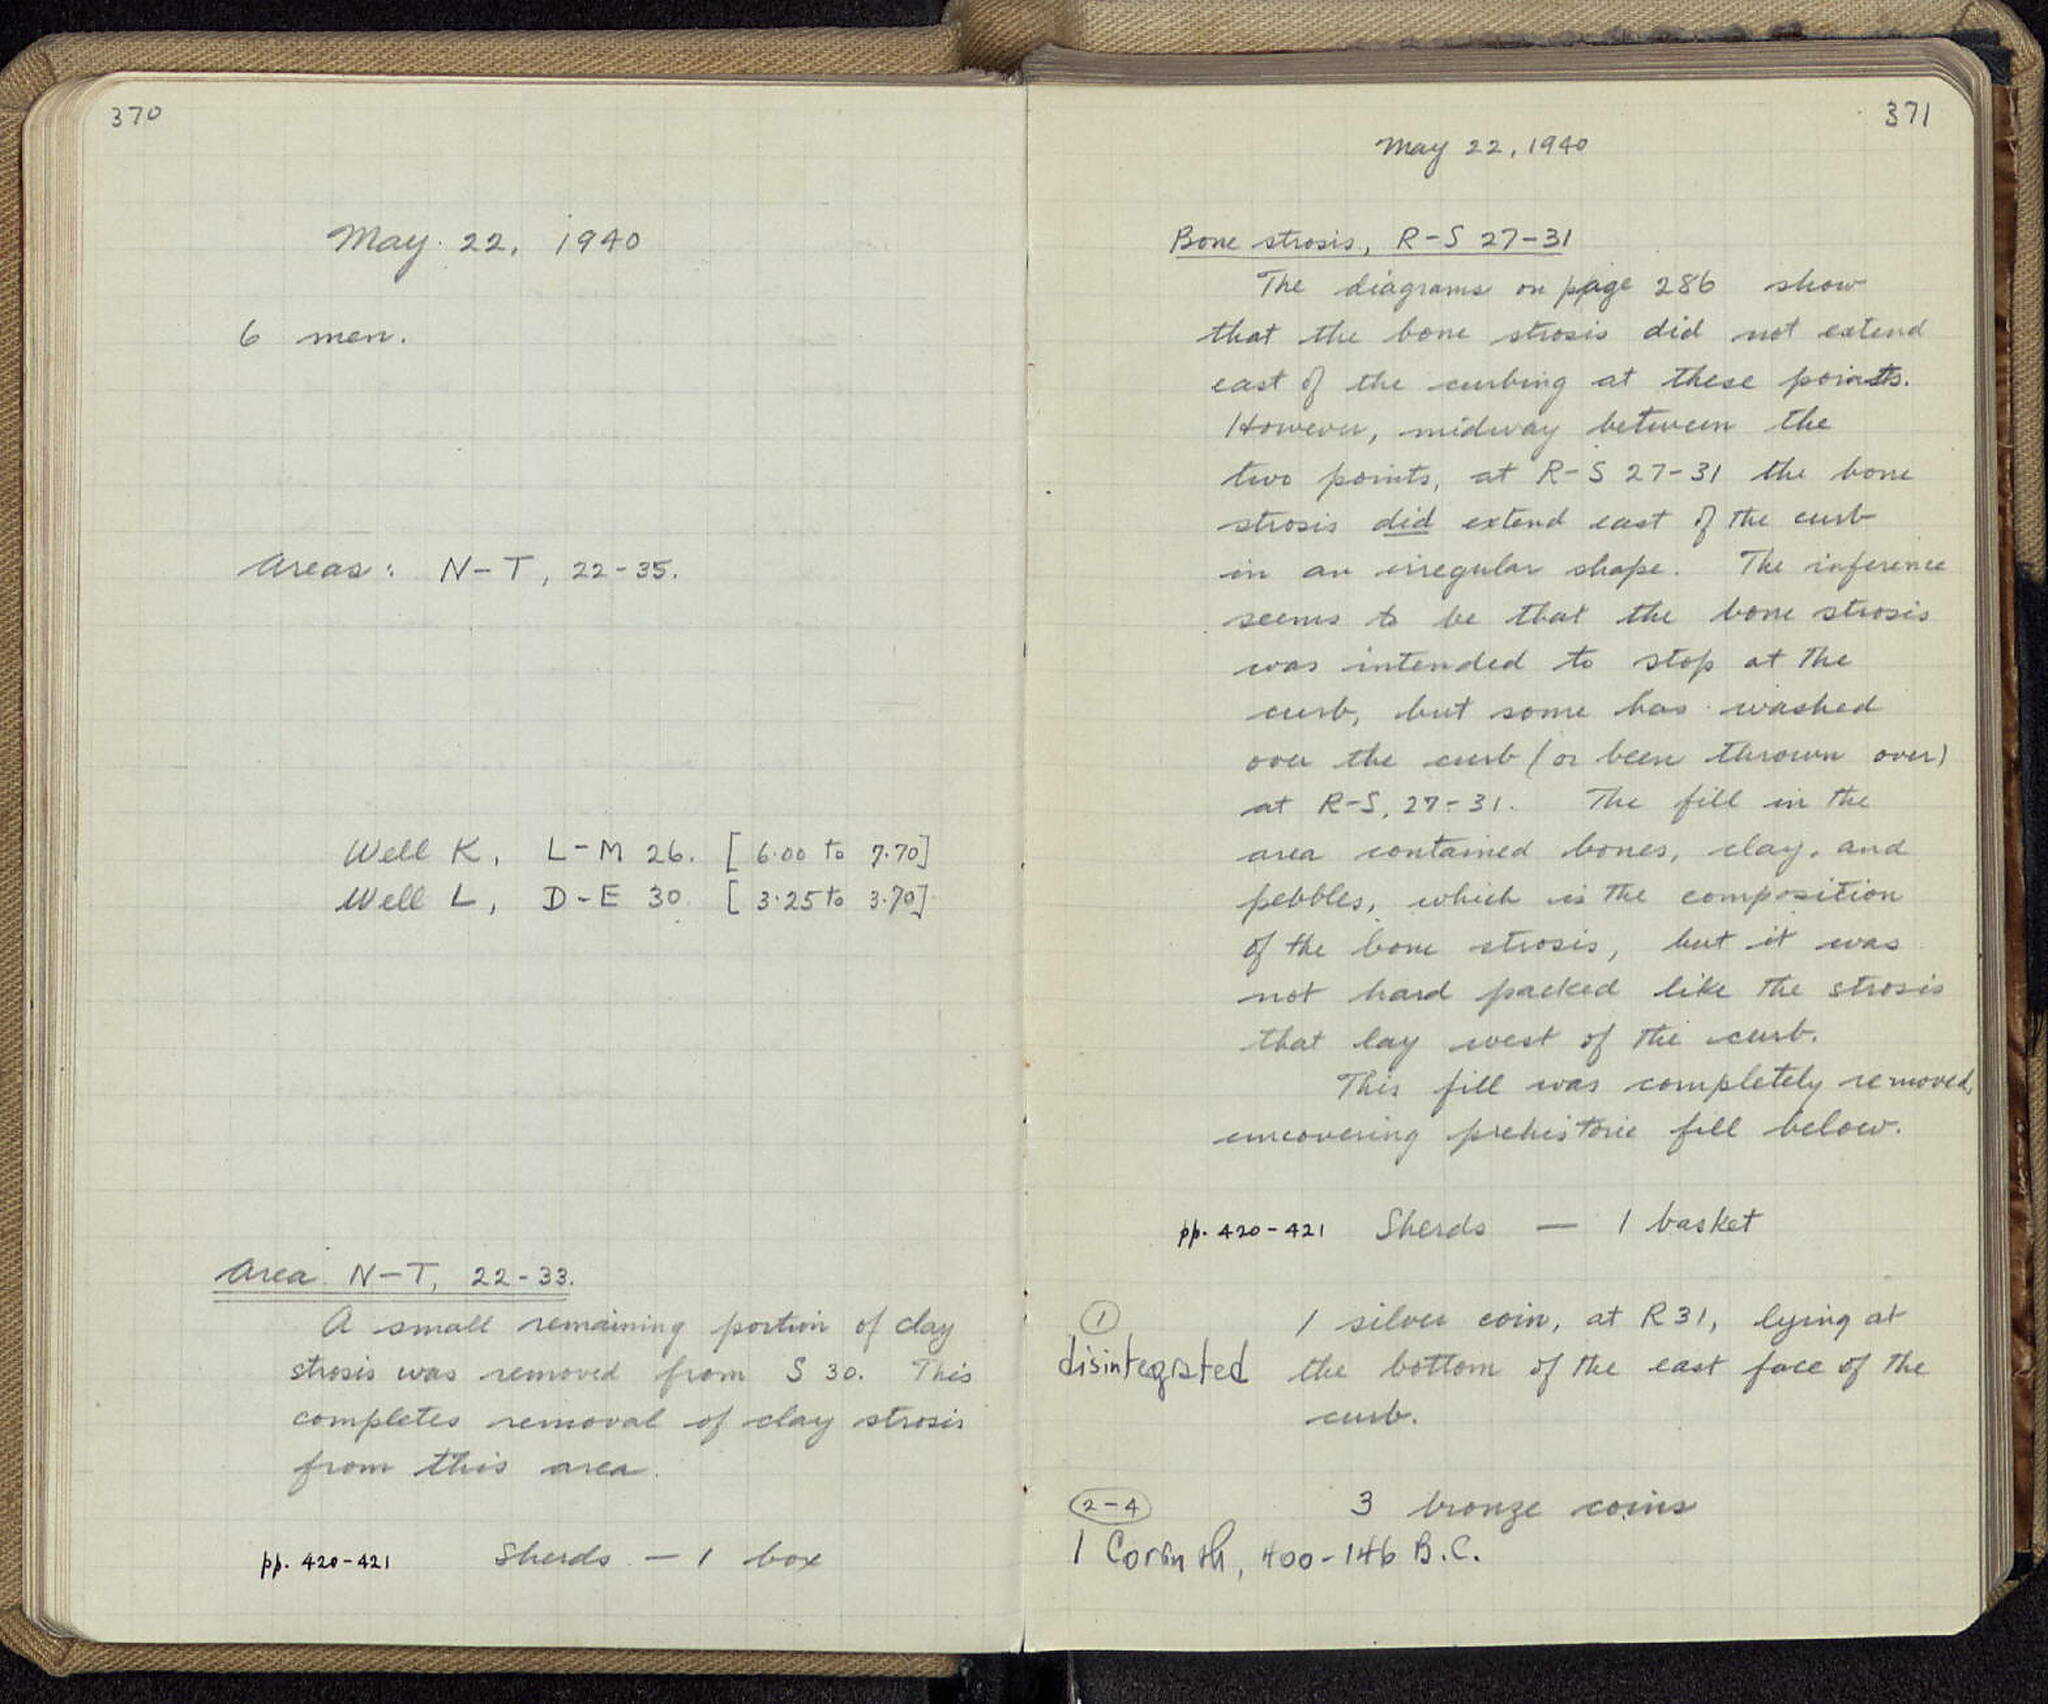 370
May. 22, 1940
6 men.
Areas: N-T, 22-35.
Well K, L-M 26. [6.00 to 7.70]
Well L, D-E 30. [3.25 to 3.70]
Area N-T, 22-33.
A small remaining portion of clay
strosis was removed from S 30. This
completes removal of clay strosis
from this area.
pp. 420-421 Sherds - 1 box
371
May 22, 1940
Bone strosis, R-S 27-31
The diagrams on page 286 show
that the bone strosis did not extend
east of the curbing at these points.
However, midway between the
two points, at R-S 27-31 the bone
strosis did extend east of the curb
in an irregular shape. The inference
seems to be that the bone strosis
was intended to stop at the
curb, but some has washed
over the curb (or been thrown over)
at R-S, 27-31. The fill in the
area contained bones, clay, and
pebbles, which is the composition
of the bone strosis, but it was
not hard packed like the strosis
that lay west of the curb.
This fill was completely removed,
uncovering prehistoric fill below.
pp. 420-421 Sherds — 1 basket
1 1 silver coin, at R 31, lying at
disintegrated the bottom of the east face of the
curb.
2-4 3 bronze coins
1 Corinth, 400-146 B.C.